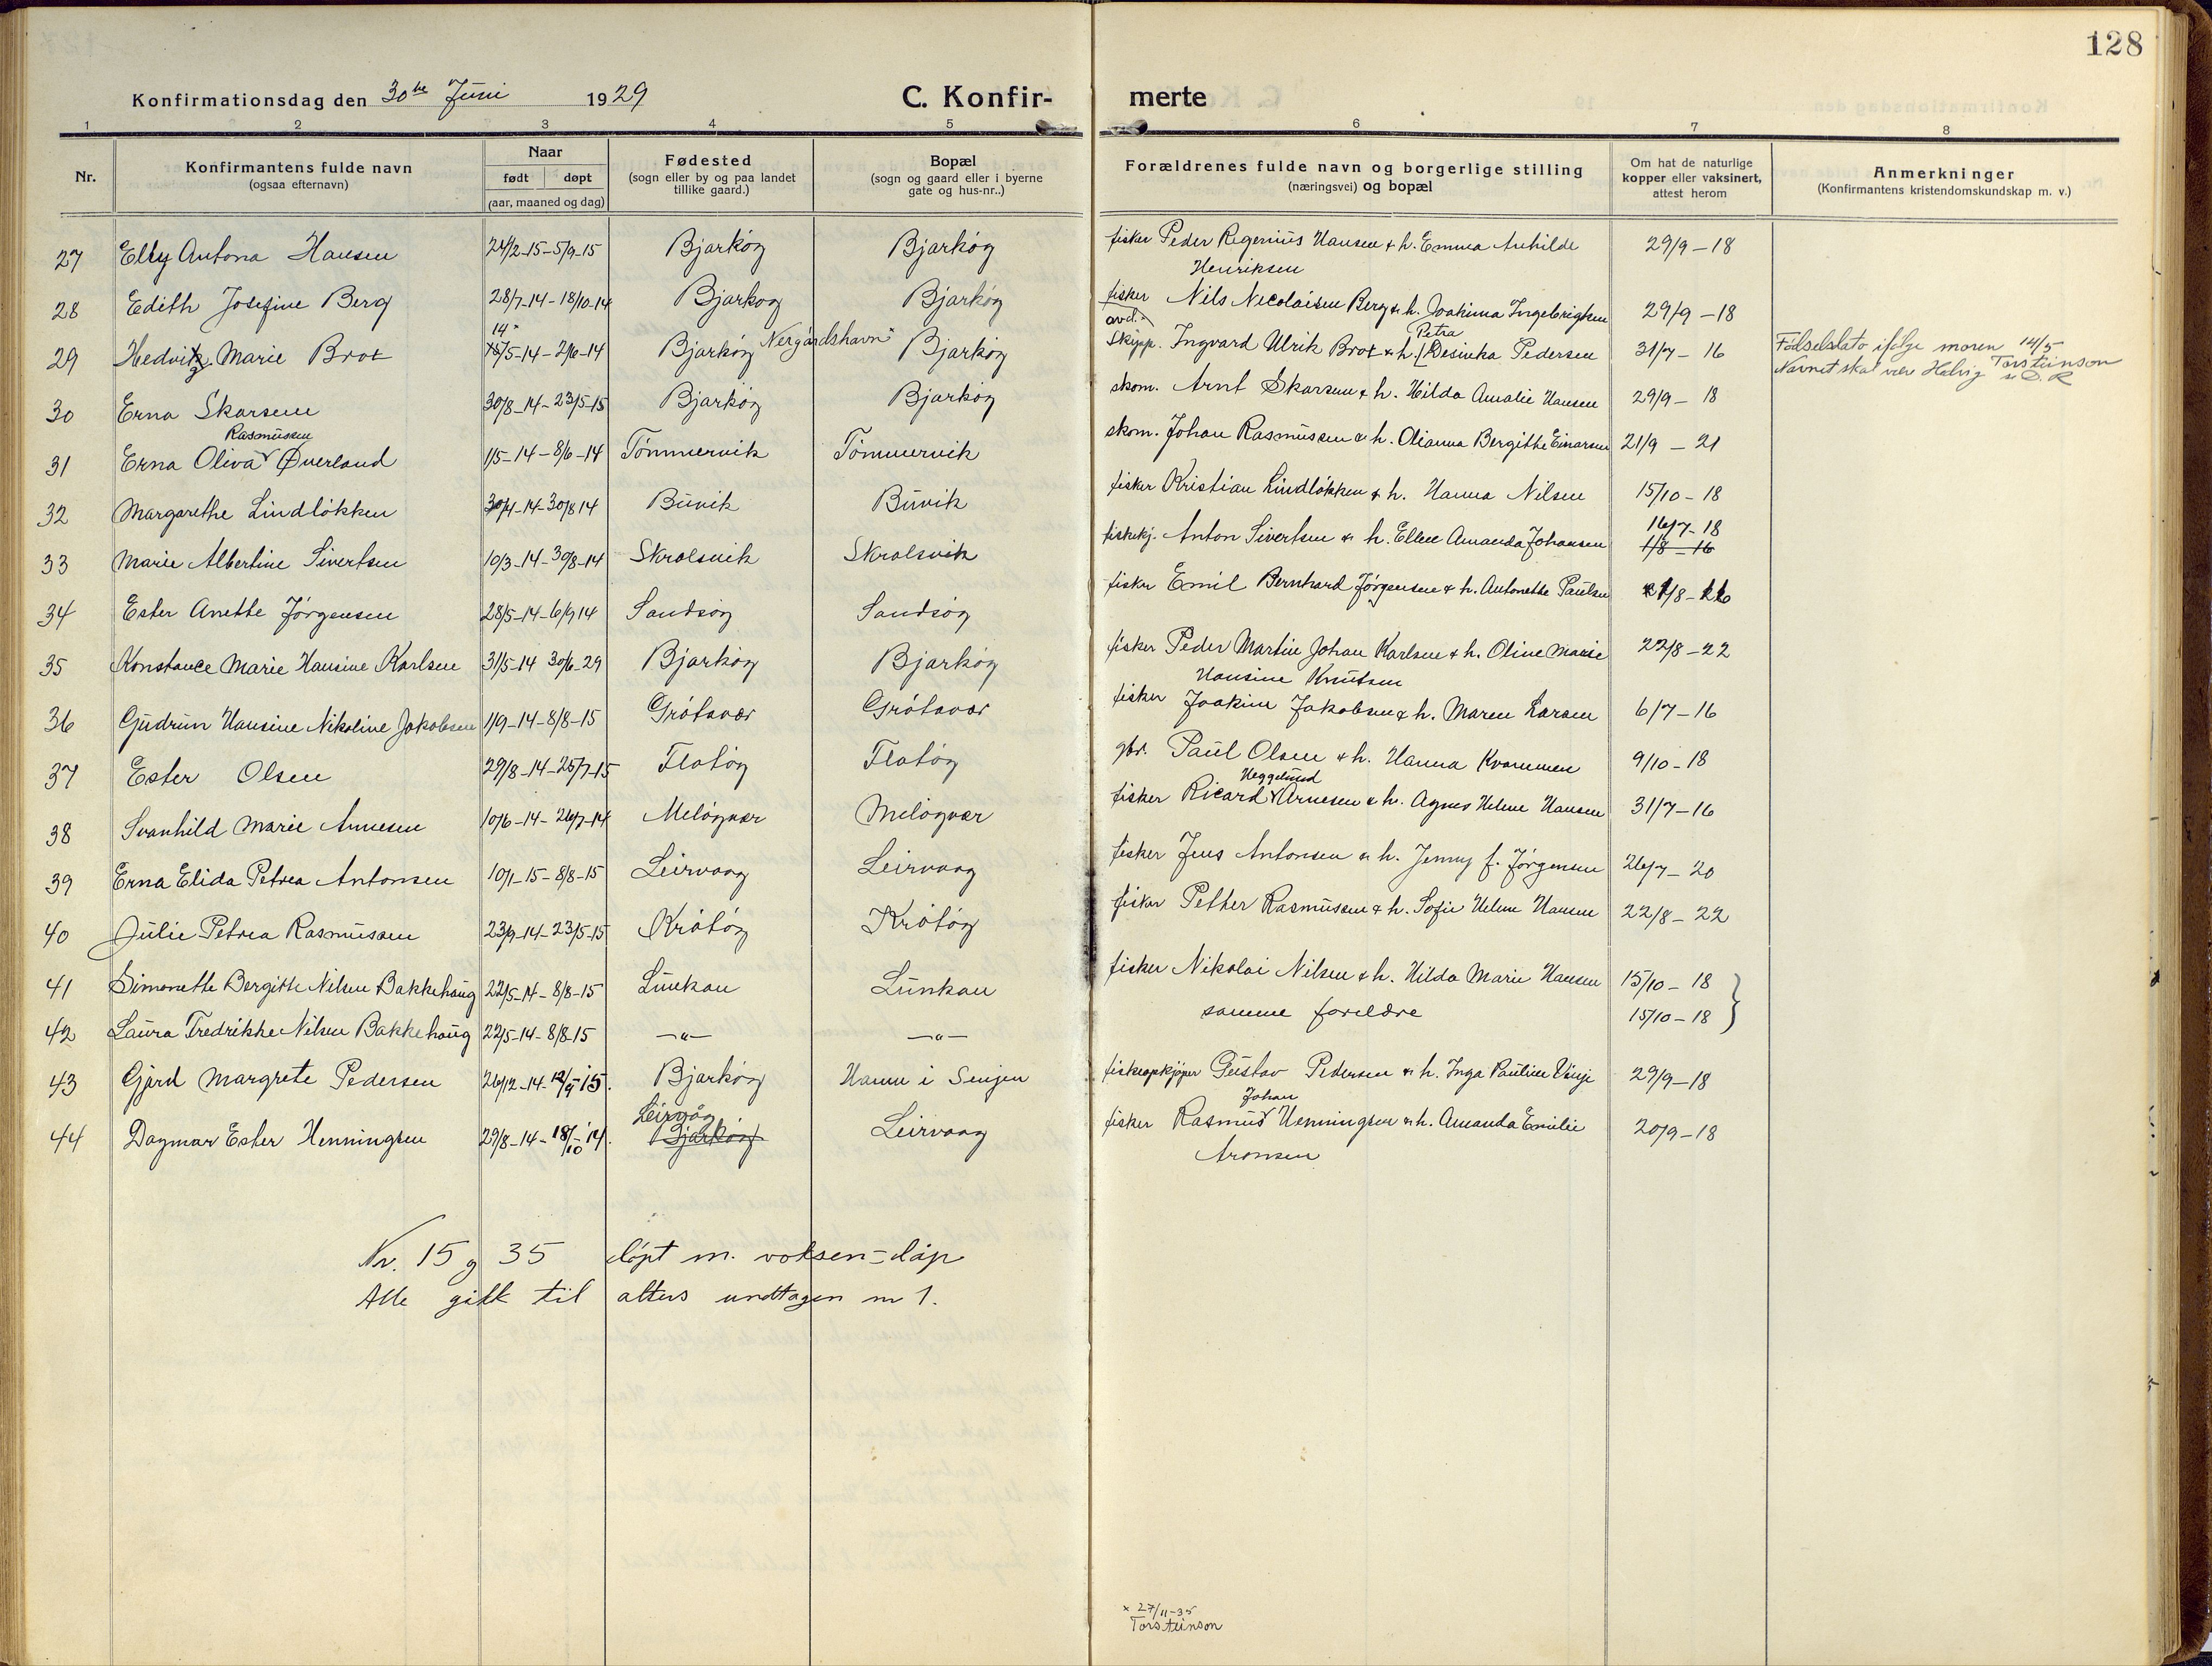 128
Konfirmationsdag den 30te Juni 1929 C. Konfir- merte
1 2 3 4 5 6 7 8
Nr. Konfirmantens fulde navn (ogsaa efternavn) Naar født døpt (aar, maaned og dag) Fødested (sogn eller by og paa landet tillike gaard.) Bopæl (sogn og gaard eller i byerne gate og hus-nr..) Forældrenes fulde navn og borgerlige stilling (næringsvei) og bopæl Om hat de naturlige kopper eller vaksinert, attest herom Anmerkninger (Konfirmantens kristendomskundskap m. v.)
27 Elly Antona Hansen 24/2-15-5/9-15 Bjarkøy Bjarkøy fisker Peder Regenius Hansen & h. Emma
Henriksen 29/9-18
28 Edith Josefine Berg 28/7-14-18/10-14 Bjarkøy Bjarkøy fisker Nils Nicolaisen Berg & h. Joakima Ingebrigtsen 29/9-18
14
29 Hedvig Marie Brox 15/5-14-2/6-14 Bjarkøy Nergårdshavn Bjarkøy avd. skipp. Ingvard Ulrik Brox & h. Petra Desideria Pedersen 31/7-16 Fødselsdato ifølge moren 14/5
Navnet skal være Helvig Torsteinson
30 Erna Skarsem 30/8-14-23/5-15 Bjarkøy Bjarkøy skom. Arnt Skarsem & h. Hilda Amalie Hansen 29/9-18
Rasmussen
31 Erna Oliva Øverland 1/5-14-8/6-14 Tømmervik Tømmervik skom. Johan Rasmussen & h. Olianna Bergithe Einarsen 21/9-21
32 Margarethe Lindløkken 30/4-14-30/8 14 Buvik Buvik fisker Kristian Lindløkken & h. Hanna Nilsen 15/10-18
33 Marie Albertine Sivertsen 10/3-14-30/8-14 Skrolsvik Skrolsvik fiskekj. Anton Sivertsen & h. Ellen Amanda Johansen 16/7-18
1/8-16
34 Ester Anette Jørgensen 28/5-14-6/9 14 Sandsøy Sandsøy fisker Emil Bernhard Jørgensen & h. Antonette Paulsen
35 Konstance Marie Hansine Karlsen 31/5-14 30/6-29 Bjarkøy Bjarkøy fisker Peder Martin Johan Karlsen & h. Oline Marie
Hansine Knutsen 22/8-22
36 Gudrun Hansine Nikoline Jakobsen 1/9-14-8/8-15 Grøtavær Grøtavær fisker Joakim Jakobsen & h. Maren Larsen 6/7-16
37 Ester Olsen 29/8-14-25/7-15 Flatøy Flatøy gbr. Paul Olsen & h. Hanna Kvammen 9/10-18
38 Svanhild Marie Arnesen 10/6-14-26/7-14 Meløyvær Meløyvær fisker Ricard Heggelund Arnesen & h. Agnes Helene Hansen 31/7-16
39 Erna Elida Petrea Antonsen 10/1-15-8/8-15 Leirvaag Leirvaag fisker Jens Antonsen & h. Jenny f. Jørgensen 26/7-20
40 Julie Petrea Rasmussen 23/9-14-23/5-15 Krøtøy Krøtøy fisker Petter Rasmussen & h. Sofie Helene Hansen 22/8-22
41 Simonette Bergitte Nilsen Bakkehaug 22/5-14-8/8-15 Lunkan Lunkan fisker Nikolai Nilsen & h. Hilda Marie Hansen 15/10-18
42 Laura Fredrikke Nilsen Bakkehaug 22/5-14-8/8-15 -"- -"- samme foreldre 15/10-18
43 Gjerd Margrete Pedersen 26/12-14-12/9 15. Bjarkøy Hamn i Senjen fiskeopkjøper Gustav Pedersen & h. Inga Pauline Vinje 29/9-18
44 Dagmar Ester Henningsen 29/8-14-18/10-14. Leirvåg Bjarkøy Leirvaag fisker Rasmus Johan Henningsen & h. Amanda Emilie
Aronsen 20/9-18
Nr. 15 og 35 døpt m. voksen-dåp
Alle gikk til alters undtagen nr 1.
x 27/11-35
Torsteinson